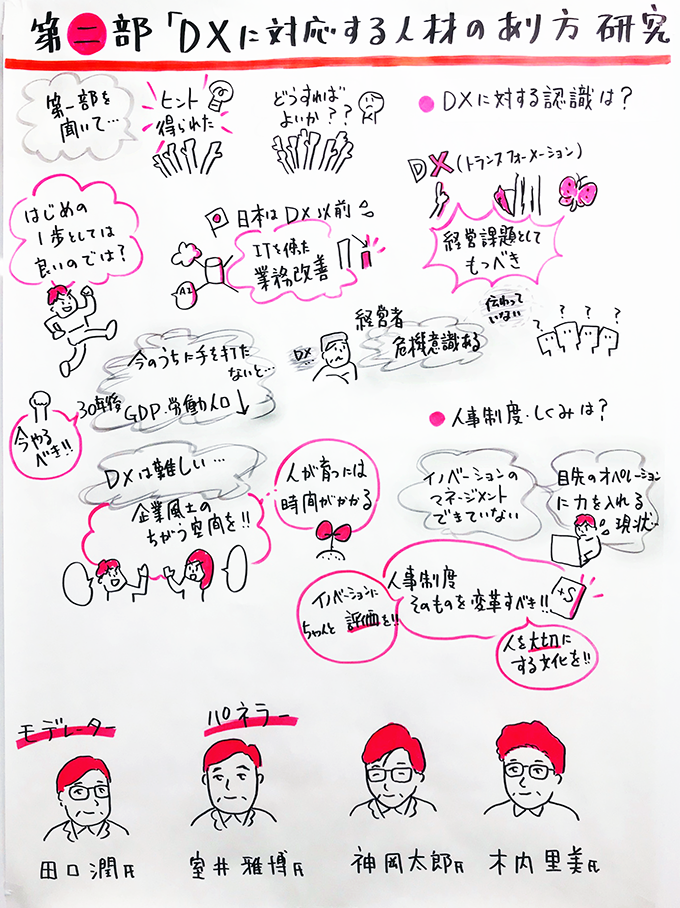 第二部「DXに対応する人材のあり方 研究
第一部を
聞いて…
ヒント
得られた
どうすれば
よいか??
●DXに対する認識は?
DX(トランスフォーメーション)
経営課題として
もつべき
はじめの
1歩としては
良いのでは?
日本はDX以前
ITを使った
業務改善
AI
今のうちに手を打た
ないと…
30年後
GDP・労働人口↓
今やる
べき!!
DX
経営者
危機意識ある
伝わって
いない
? ? ? ?
●人事制度・しくみは?
DXは難しい…
企業風土の
ちがう空間を!!
人が育つには
時間がかかる
イノベーションの
マネージメント
できていない
目先のオペレーション
に力を入れる
現状…
イノベーションに
ちゃんと評価を!!
人事制度
そのものを変革すべき!!
+S
人を大切に
する文化を!!
モデレーター
パネラー
田口潤氏
室井雅博氏
神岡太郎氏
木内里美氏